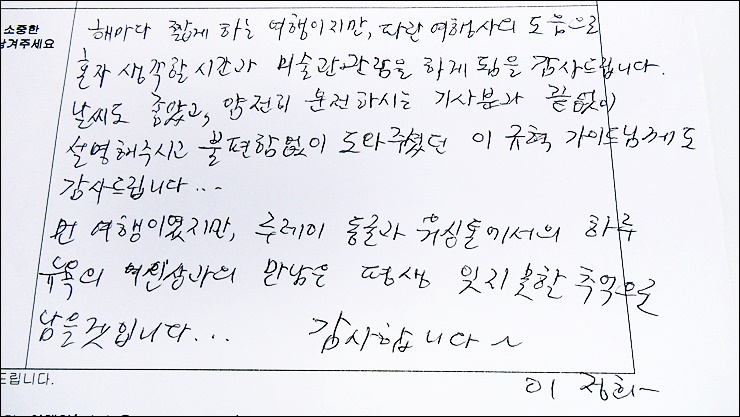 소중한
남겨주세요
해마다 짧게 하는 여행이지만, 파란여행사의 도움으로
혼자 생각할 시간과 미술관관람을 하게 됨을 감사드립니다.
날씨도 좋았고, 안전히 운전하시는 기사분과 끝없이
설명해주시고 불편함없이 도와주셨던 이 규혁 가이드님께도
감사드립니다...
먼 여행이였지만, 루레이 동굴과 워싱톤에서의 하루
뉴욕의 여인상과의 만남은 평생 잊지못할 추억으로
남을것입니다... 감사합니다~
드립니다.
이 정희~